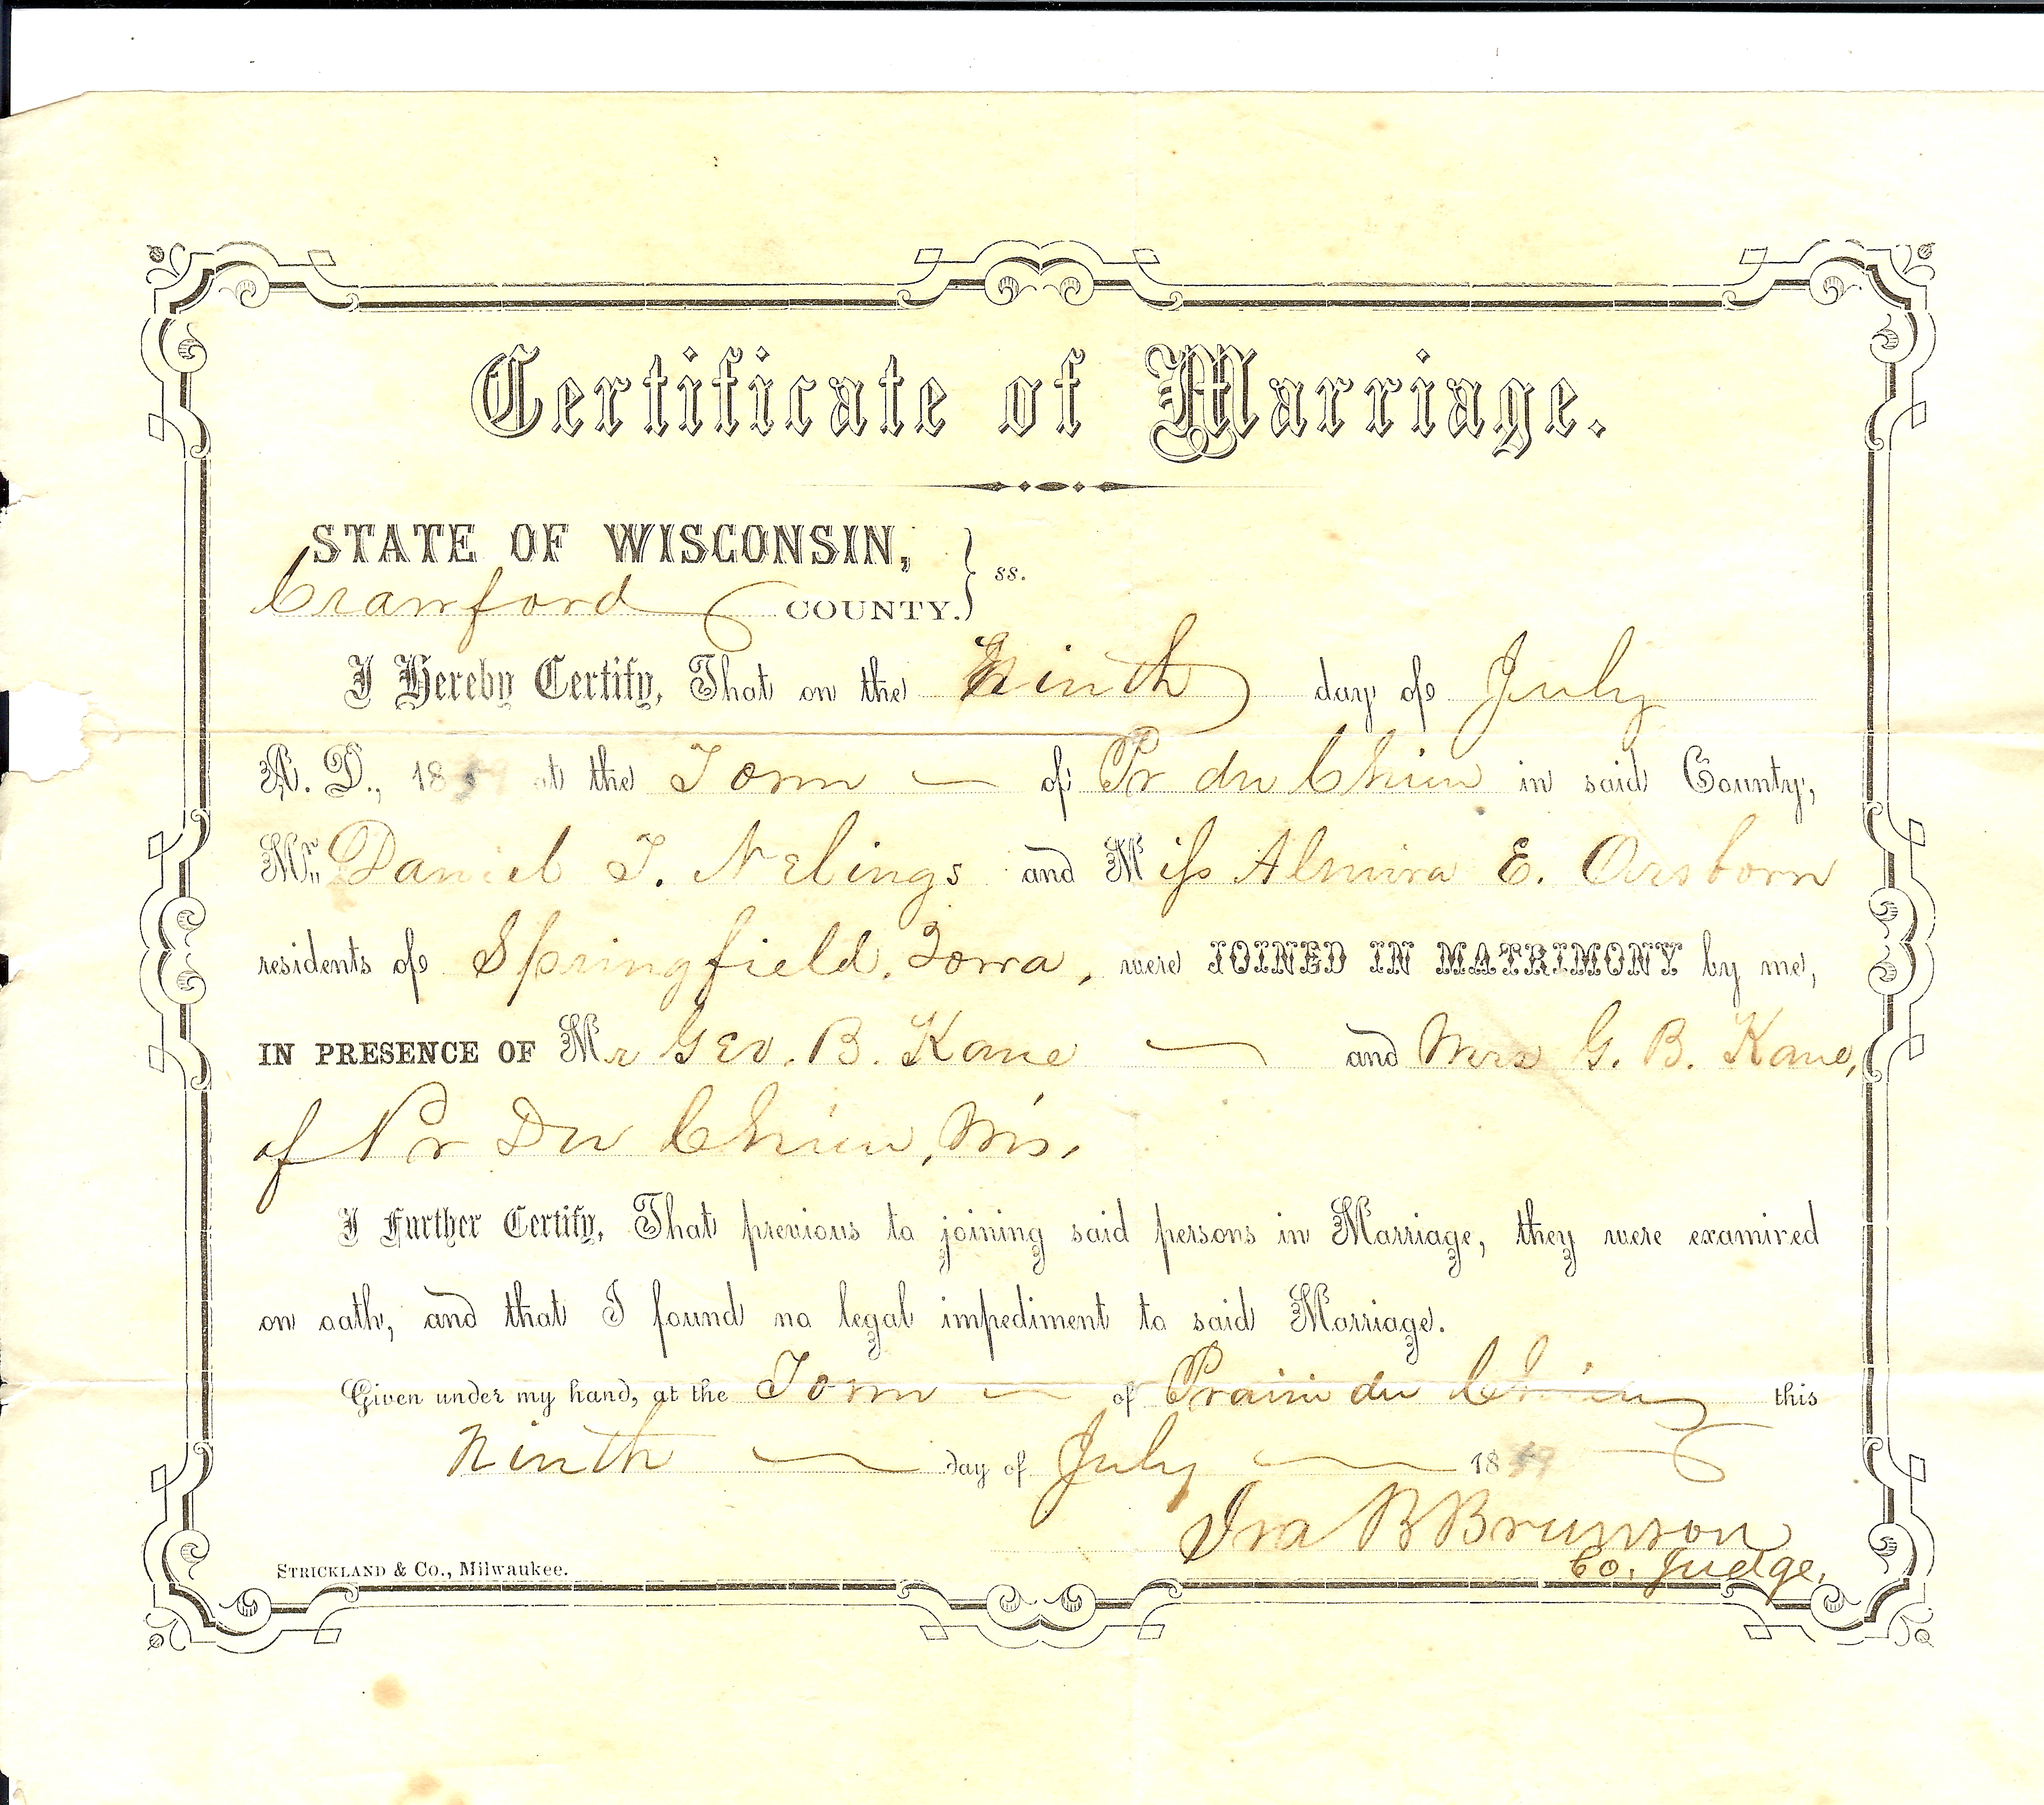 Certificate of Marriage.
STATE OF WISCONSIN,
Crawford COUNTY. } ss.
I Hereby Certify, That on the Ninth day of July
A. D., 1859 at the Town of Pr du Chien in said County,
Mr. Daniel T. Nelings and Miss Almira E. Orsborn
residents of Springfield, Iowa, were JOINED IN MATRIMONY by me,
IN PRESENCE OF Mr Geo. B. Kane and Mrs G. B. Kane,
of Pr Du Chien, Wis.
I Further Certify, That previous to joining said persons in Marriage, they were examined
on oath, and that I found no legal impediment to said Marriage.
Given under my hand, at the Town of Prairie du Chien this
Ninth day of July 1859
Ira B Brunson
Co. Judge.
STRICKLAND & Co., Milwaukee.